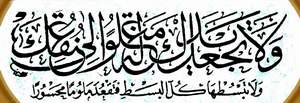 ولا تجعل يدك مغلولة إلى عنقك
ولا تبسطها كل البسط فتقعد ملوما محسورا